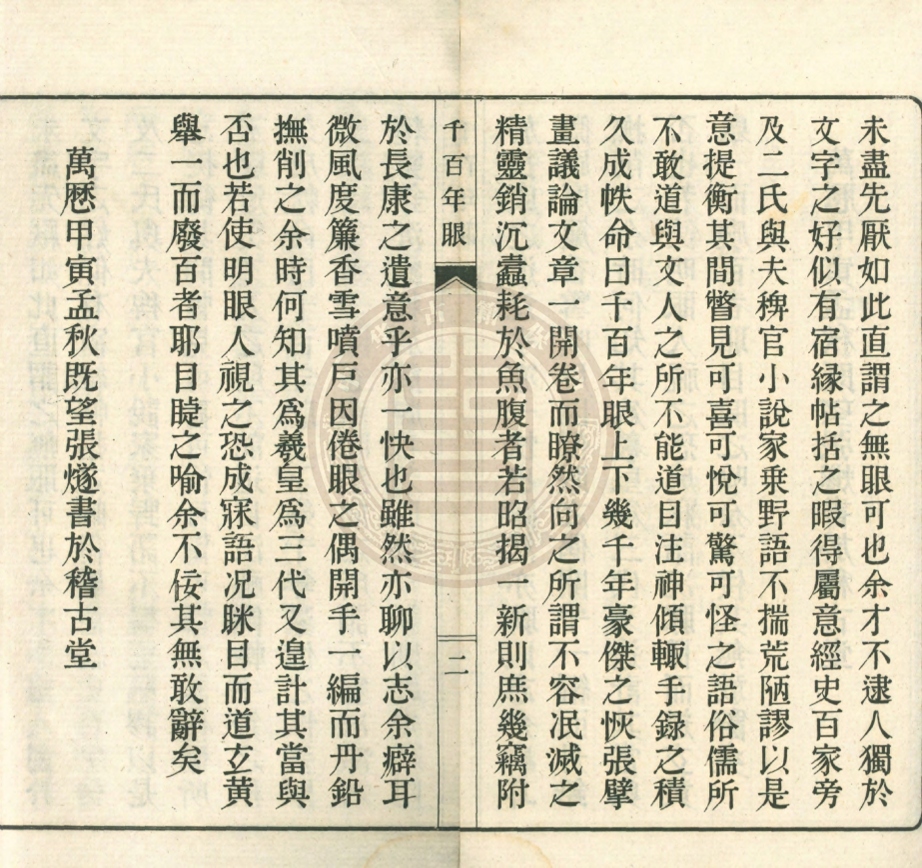 未盡先厭如此直謂之無眼可也余才不逮人獨於
文字之好似有宿縁帖括之暇得屬意經史百家旁
及二氏與夫稗官小說家乗野語不揣荒陋謬以是
意提衡其間瞥見可喜可悅可驚可怪之語俗儒所
不敢道與文人之所不能道目注神傾輙手録之積
久成帙命曰千百年眼上下幾千年豪傑之恢張擘
畫議論文章一開卷而瞭然向之所謂不容泯滅之
精靈銷沉蠧耗於魚腹者若昭揭一新則庶幾竊附
千百年眼
二
於長康之遺意乎亦一快也雖然亦聊以志余癖耳
微風度簾香雪噴戶因倦眼之偶開手一編而丹鉛
撫削之余時何知其爲羲皇爲三代又遑計其當與
否也若使明眼人視之恐成寐語况眯目而道玄黄
舉一而廢百者耶目睫之喻余不佞其無敢辭矣
萬厯甲寅孟秋既望張燧書於稽古堂